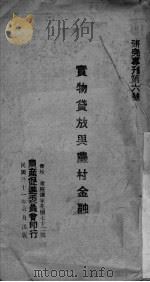 研究專刊第六號
實物貸放與農村金融
農產促進委員會印行
民國三十一年六月出版